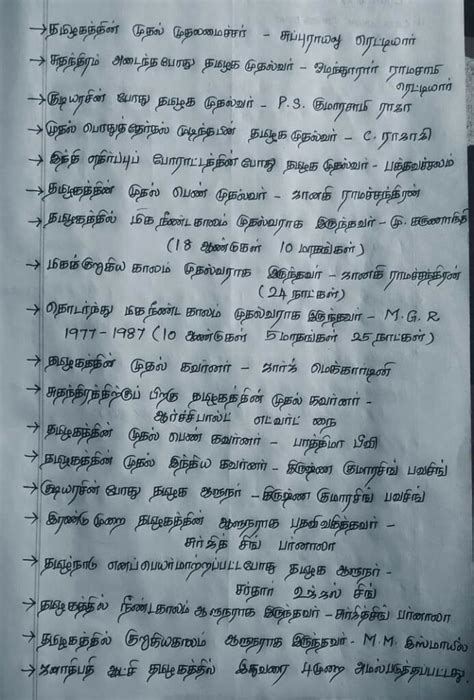 → தமிழகத்தின் முதல் முதலமைச்சர் - சுப்புராயலு ரெட்டியார்
→ சுதந்திரம் அடைந்த போது தமிழக முதல்வர் - ஓமந்தூரார் ராமசாமி
ரெட்டியார்
→ குடியரசின் போது தமிழக முதல்வர் - P.S. குமாரசாமி ராஜா
→ முதல் பொதுத்தேர்தல் முடிந்தபின் தமிழக முதல்வர் - C. ராஜாஜி
→ இந்தி எதிர்ப்புப் போராட்டத்தின்போது தமிழக முதல்வர் - பக்தவச்சலம்
→ தமிழகத்தின் முதல் பெண் முதல்வர் - ஜானகி ராமச்சந்திரன்
→ தமிழகத்தில் மிக நீண்டகாலம் முதல்வராக இருந்தவர் - மு. கருணாநிதி
(18 ஆண்டுகள் 10 மாதங்கள்)
→ மிகக்குறுகிய காலம் முதல்வராக இருந்தவர் - ஜானகி ராமச்சந்திரன்
(24 நாட்கள்)
→ தொடர்ந்து மிக நீண்ட காலம் முதல்வராக இருந்தவர் - M.G.R
1977-1987 (10 ஆண்டுகள் 5 மாதங்கள் 25 நாட்கள்)
→ தமிழகத்தின் முதல் கவர்னர் - ஜார்ஜ் மெக்கார்டினி
→ சுதந்திரத்திற்குப் பிறகு தமிழகத்தின் முதல் கவர்னர் -
ஆர்ச்சிபால்ட் எட்வர்ட் நை
→ தமிழகத்தின் முதல் பெண் கவர்னர் - பாத்திமா பீவி
→ தமிழகத்தின் முதல் இந்திய கவர்னர் - கிருஷ்ண குமாரசிங் பவசிங்
→ குடியரசின் போது தமிழக ஆளுநர் - கிருஷ்ண குமாரசிங் பவசிங்
→ இரண்டு முறை தமிழகத்தின் ஆளுநராக பதவிவகித்தவர் -
சுர்ஜித் சிங் பர்னாலா
→ தமிழ்நாடு எனப்பெயர்மாற்றப்பட்டபோது தமிழக ஆளுநர் -
சர்தார் உஜ்ஜல் சிங்
→ தமிழகத்தில் நீண்டகாலம் ஆளுநராக இருந்தவர் - சுர்ஜித்சிங் பர்னாலா
→ தமிழகத்தில் குறுகியகாலம் ஆளுநராக இருந்தவர் - M.M. இஸ்மாயில்
→ ஜனாதிபதி ஆட்சி தமிழகத்தில் இதுவரை 4முறை அமல்படுத்தப்பட்டது.